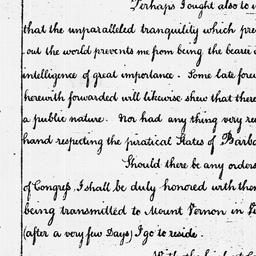 Perhaps I ought also to
that the unparalleled tranquility which pre
out the world prevents me from being the beare
intelligence of great importance. Some late fore
herewith forwarded will likewise shew that there
a public nature. Nor had any thing very re
hand respecting the piratical States of Barba
Should there be any orders
of Congress I shall be duly honored with them
being transmitted to Mount Vernon in
(after a very few Days) I go to reside.